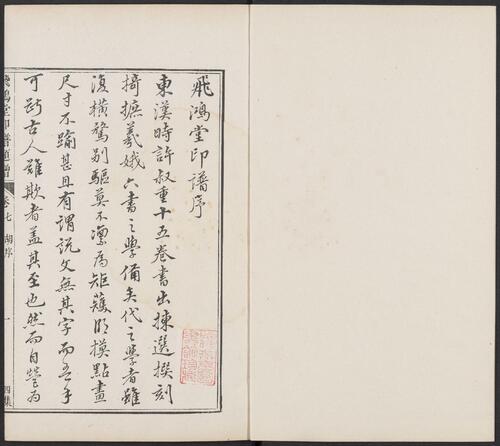 飛鴻堂印譜序
東漢時許叔重十五卷書出揀選撰刻
掎摭羲娥六書之學備矣代之學者雖
復橫騖別驅莫不凜為矩矱臨模點畫
尺寸不踰甚且有謂說文無其字而吾手
可斷古人雖欺者蓋其至也然而自營為
飛鴻堂印譜
卷七 胡序 一 四集